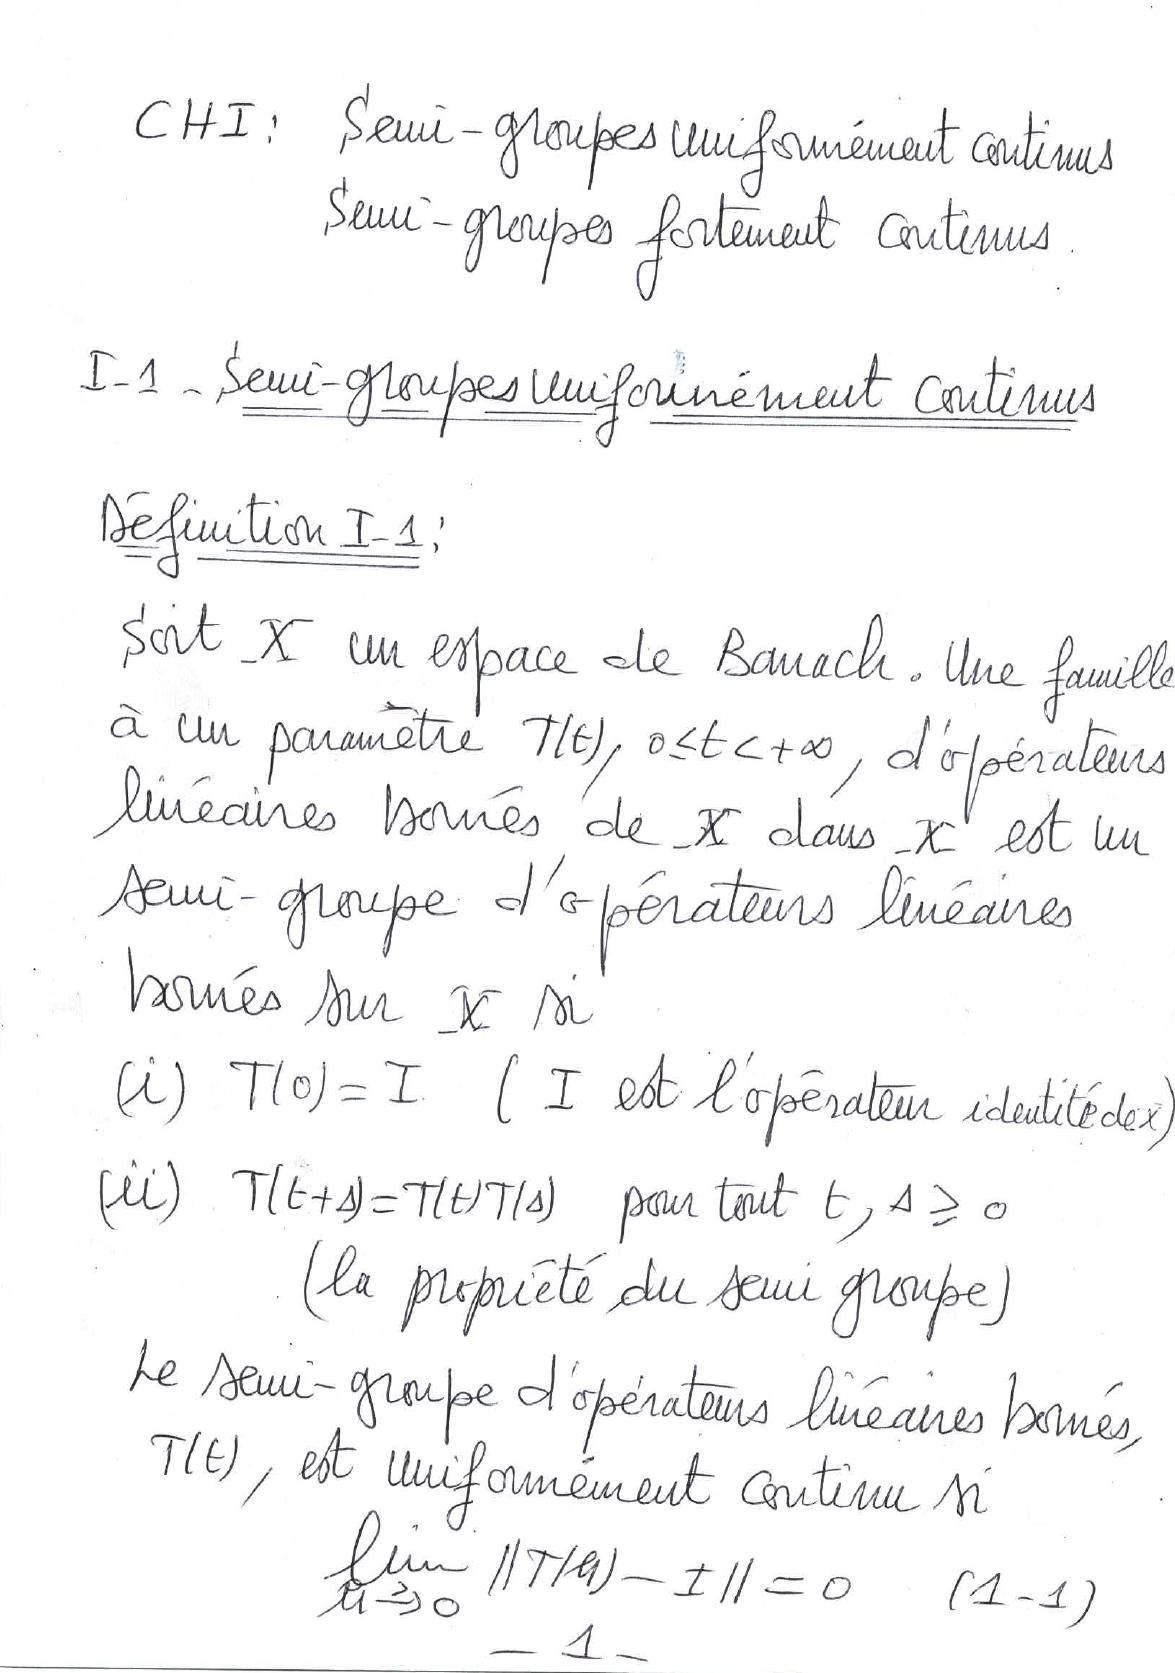 CHI : Semi-groupes uniformément continus
Semi-groupes fortement continus.
I-1 - Semi-groupes uniformément continus
Définition I-1 :
Soit X un espace de Banach. Une famille
à un paramètre T(t), 0≤t<+∞, d'opérateurs
linéaires bornés de X dans X est un
semi-groupe d'opérateurs linéaires
bornés sur X si
(i) T(0) = I ( I est l'opérateur identité de X)
(ii) T(t+s)=T(t)T(s) pour tout t, s ≥ 0
(la propriété du semi groupe)
Le semi-groupe d'opérateurs linéaires bornés,
T(t), est uniformément continu si
lim ||T(h) - I|| = 0 (1-1)
h→0
- 1 -